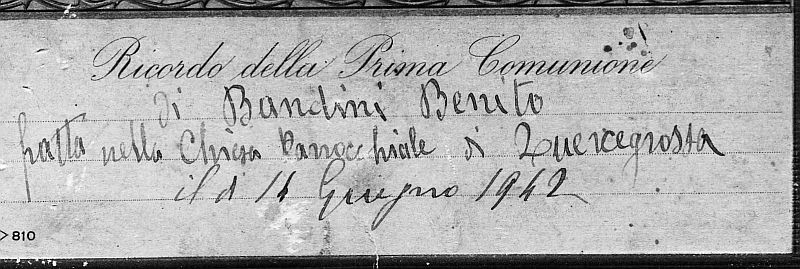 Ricordo della Prima Comunione
di Bandini Benito
fatta nella Chiesa Parrocchiale di Quercegrossa
il dì 14 Giugno 1942
810